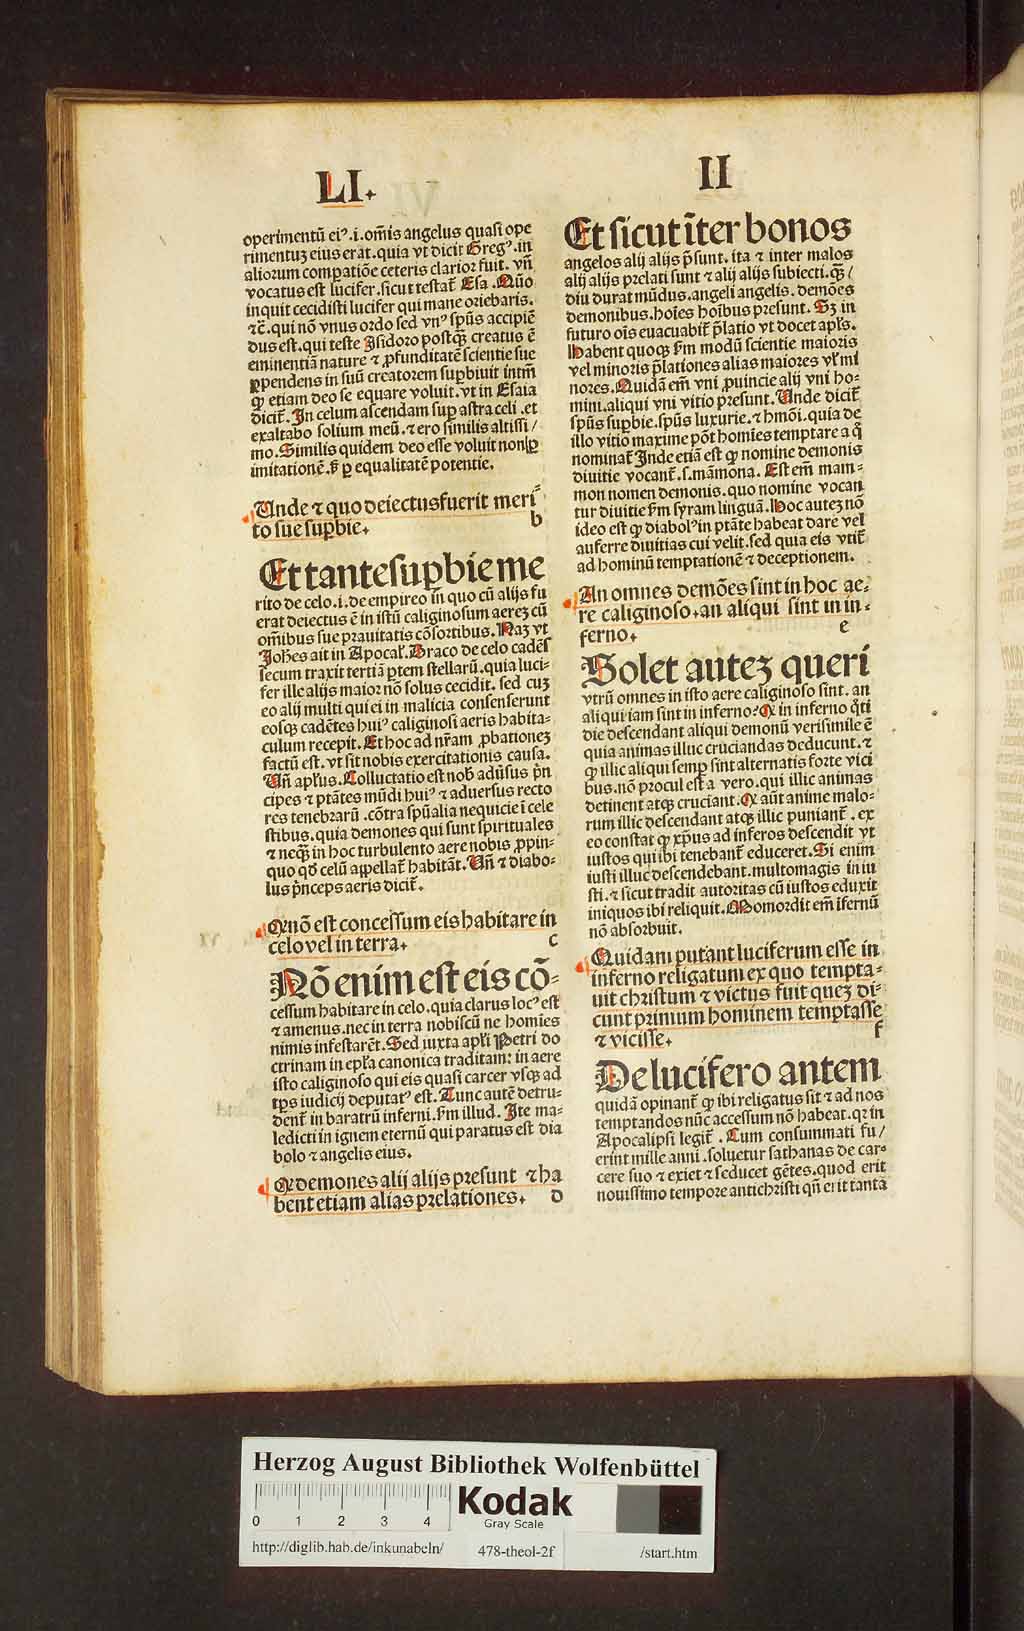 LI.
II
operimentū eiꝰ.i.om̄is angelus quasi ope
rimentuꝫ eius erat.quia vt dicit Gregꝰ.in
aliorum compatiōe ceteris clarior fuit. vn̄
vocatus est lucifer.sicut testat̄ Esa.Nūo
inquit cecidisti lucifer qui mane oriebaris.
⁊c̄.qui nō vnus ordo sed vnꝰ sp̄us accipiē
dus est.qui teste Isidoro postqꝫ creatus ē
eminentiā nature ⁊ ꝓfunditatē scientie sue
ꝑpendens in suū creatorem suꝑbiuit intm̄
ꝙ etiam deo se equare voluit.vt in Esaia
dicit̄.In celum ascendam suꝑ astra celi.et
exaltabo solium meū.⁊ ero similis altissi/
mo.Similis quidem deo esse voluit non ꝑ
imitationē.sꝫ ꝑ equalitatē potentie.
Unde ⁊ quo deiectus fuerit meri
to sue suꝑbie. b
Et tante suꝑbie me
rito de celo.i.de empireo in quo cū alijs fu
erat deiectus ē in istū caliginosum aereꝫ cū
om̄ibus sue prauitatis cōsortibus.Naꝫ vt
Joh̄es ait in Apocal̄.Draco de celo cadēs
secum traxit tertiā ꝑtem stellarū.quia luci-
fer ille alijs maior nō solus cecidit. sed cuꝫ
eo alij multi qui ei in malicia consenserunt
eosqꝫ cadētes huiꝰ caliginosi aeris habita-
culum recepit.Et hoc ad nr̄am ꝓbationeꝫ
factū est.vt sit nobis exercitationis causa.
Un̄ apl̄us.Colluctatio est nob̄ adūsus p̄n
cipes ⁊ ptātes mūdi huiꝰ ⁊ aduersus recto
res tenebrarū.cōtra sp̄ualia nequicie ī cele
stibus.quia demones qui sunt spirituales
⁊ neqꝫ in hoc turbulento aere nobis ꝓpin-
quo qd̄ celū appellat̄ habitāt.Un̄ ⁊ diabo-
lus p̄nceps aeris dicit̄.
Ꝙ nō est concessum eis habitare in
celo vel in terra. c
Nō enim est eis cō-
cessum habitare in celo.quia clarus locꝰ est
⁊ amenus.nec in terra nobiscū ne homīes
nimis infestarēt.Sed juxta apl̄i Petri do
ctrinam in epl̄a canonica traditam: in aere
isto caliginoso qui eis quasi carcer vsqꝫ ad
tp̄s iudicij deputatꝰ est.Tunc autē detru-
dent̄ in baratrū inferni.sm̄ illud. Ite ma-
ledicti in ignem eternū qui paratus est dia
bolo ⁊ angelis eius.
Ꝙ demones alij alijs presunt ⁊ ha
bent etiam alias prelationes. d
Et sicut īter bonos
angelos alij alijs p̄sunt.ita ⁊ inter malos
alij alijs prelati sunt ⁊ alij alijs subiecti.qꝫ/
diu durat mūdus.angeli angelis.demōes
demonibus.hoīes hoībus presunt.Sꝫ in
futuro oīs euacuabit̄ p̄latio vt docet apl̄s.
Habent quoqꝫ sm̄ modū scientie maioris
vel minoris p̄lationes alias maiores vl̄ mi
nores.Quidā em̄ vni ꝓuincie alij vni ho-
mini.aliqui vni vitio presunt.Unde dicit̄
sp̄us suꝑbie.sp̄us luxurie.⁊ hmōi.quia de
illo vitio maxime pōt homīes temptare a q̊
nominat̄ Inde etiā est ꝙ nomine demonis
diuitie vocant̄.s.māmona. Est em̄ mam-
mon nomen demonis.quo nomine vocan
tur diuitie sm̄ syram linguā.Hoc auteꝫ nō
ideo est ꝙ diabolꝰ in ptāte habeat dare vel
auferre diuitias cui velit.sed quia eis vtit̄
ad hominū temptationē ⁊ deceptionem.
An omnes demōes sint in hoc ae-
re caliginoso.an aliqui sint in in-
ferno. e
Solet auteꝫ queri
vtrū omnes in isto aere caliginoso sint. an
aliqui iam sint in inferno?Ꝙ in inferno q̊ti
die descendant aliqui demonū verisimile ē
quia animas illuc cruciandas deducunt.⁊
ꝙ illic aliqui semꝑ sint alternatis forte vici
bus.nō procul est a vero.qui illic animas
detinent atqꝫ cruciant.Ꝙ aūt anime malo-
rum illic descendant atqꝫ illic puniant̄. ex
eo constat ꝙ xp̄us ad inferos descendit vt
iustos qui ibi tenebant̄ educeret.Si enim
iusti illuc descendebant.multomagis iniu
sti.⁊ sicut tradit autoritas cū iustos eduxit
iniquos ibi reliquit.Momordit em̄ ifernū
nō absorbuit.
Quidam putant luciferum esse in
inferno religatum ex quo tempta-
uit christum ⁊ victus fuit queꝫ di-
cunt primum hominem temptasse
⁊ vicisse. f
De lucifero autem
quidā opinant̄ ꝙ ibi religatus sit ⁊ ad nos
temptandos nūc accessum nō habeat.qꝛ in
Apocalipsi legit̄. Cum consummati fu/
erint mille anni.soluetur sathanas de car-
cere suo ⁊ exiet ⁊ seducet gētes.quod erit
nouissimo tempore antichristi qn̄ erit tanta
Herzog August Bibliothek Wolfenbüttel
Kodak
Gray Scale
0 1 2 3 4
http://diglib.hab.de/inkunabeln/ 478-theol-2f /start.htm